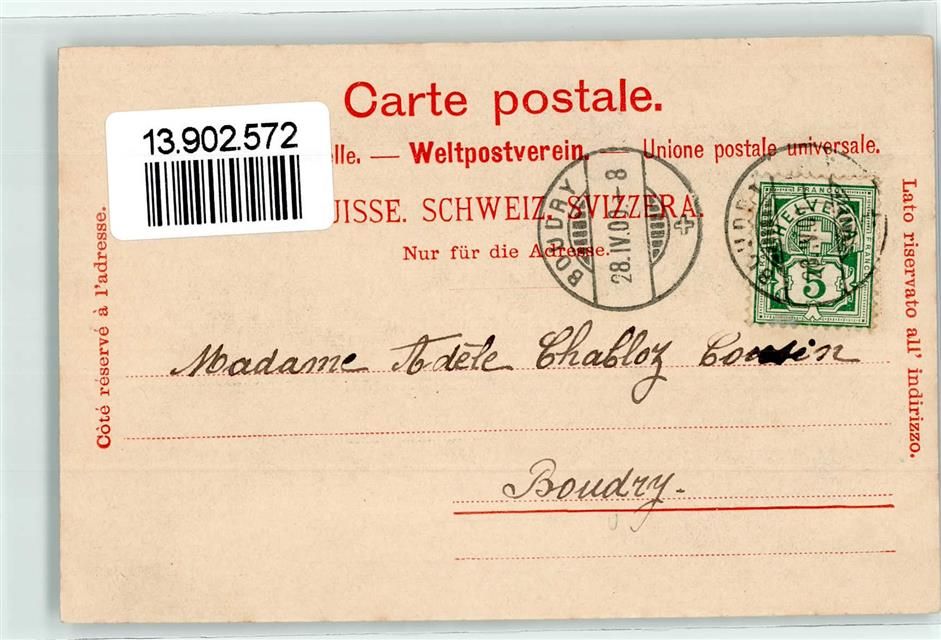 Carte postale.
13.902.572
elle. — Weltpostverein. — Unione postale universale.
UISSE. SCHWEIZ. SVIZZERA.
Nur für die Adresse.
Côté réservé à l'adresse.
Lato riservato all' indirizzo.
BOUDRY
28.IV.00-8
FRANCO
HELVETIA
FRANCO
5
Madame Adèle Chabloz Cousin
Boudry.